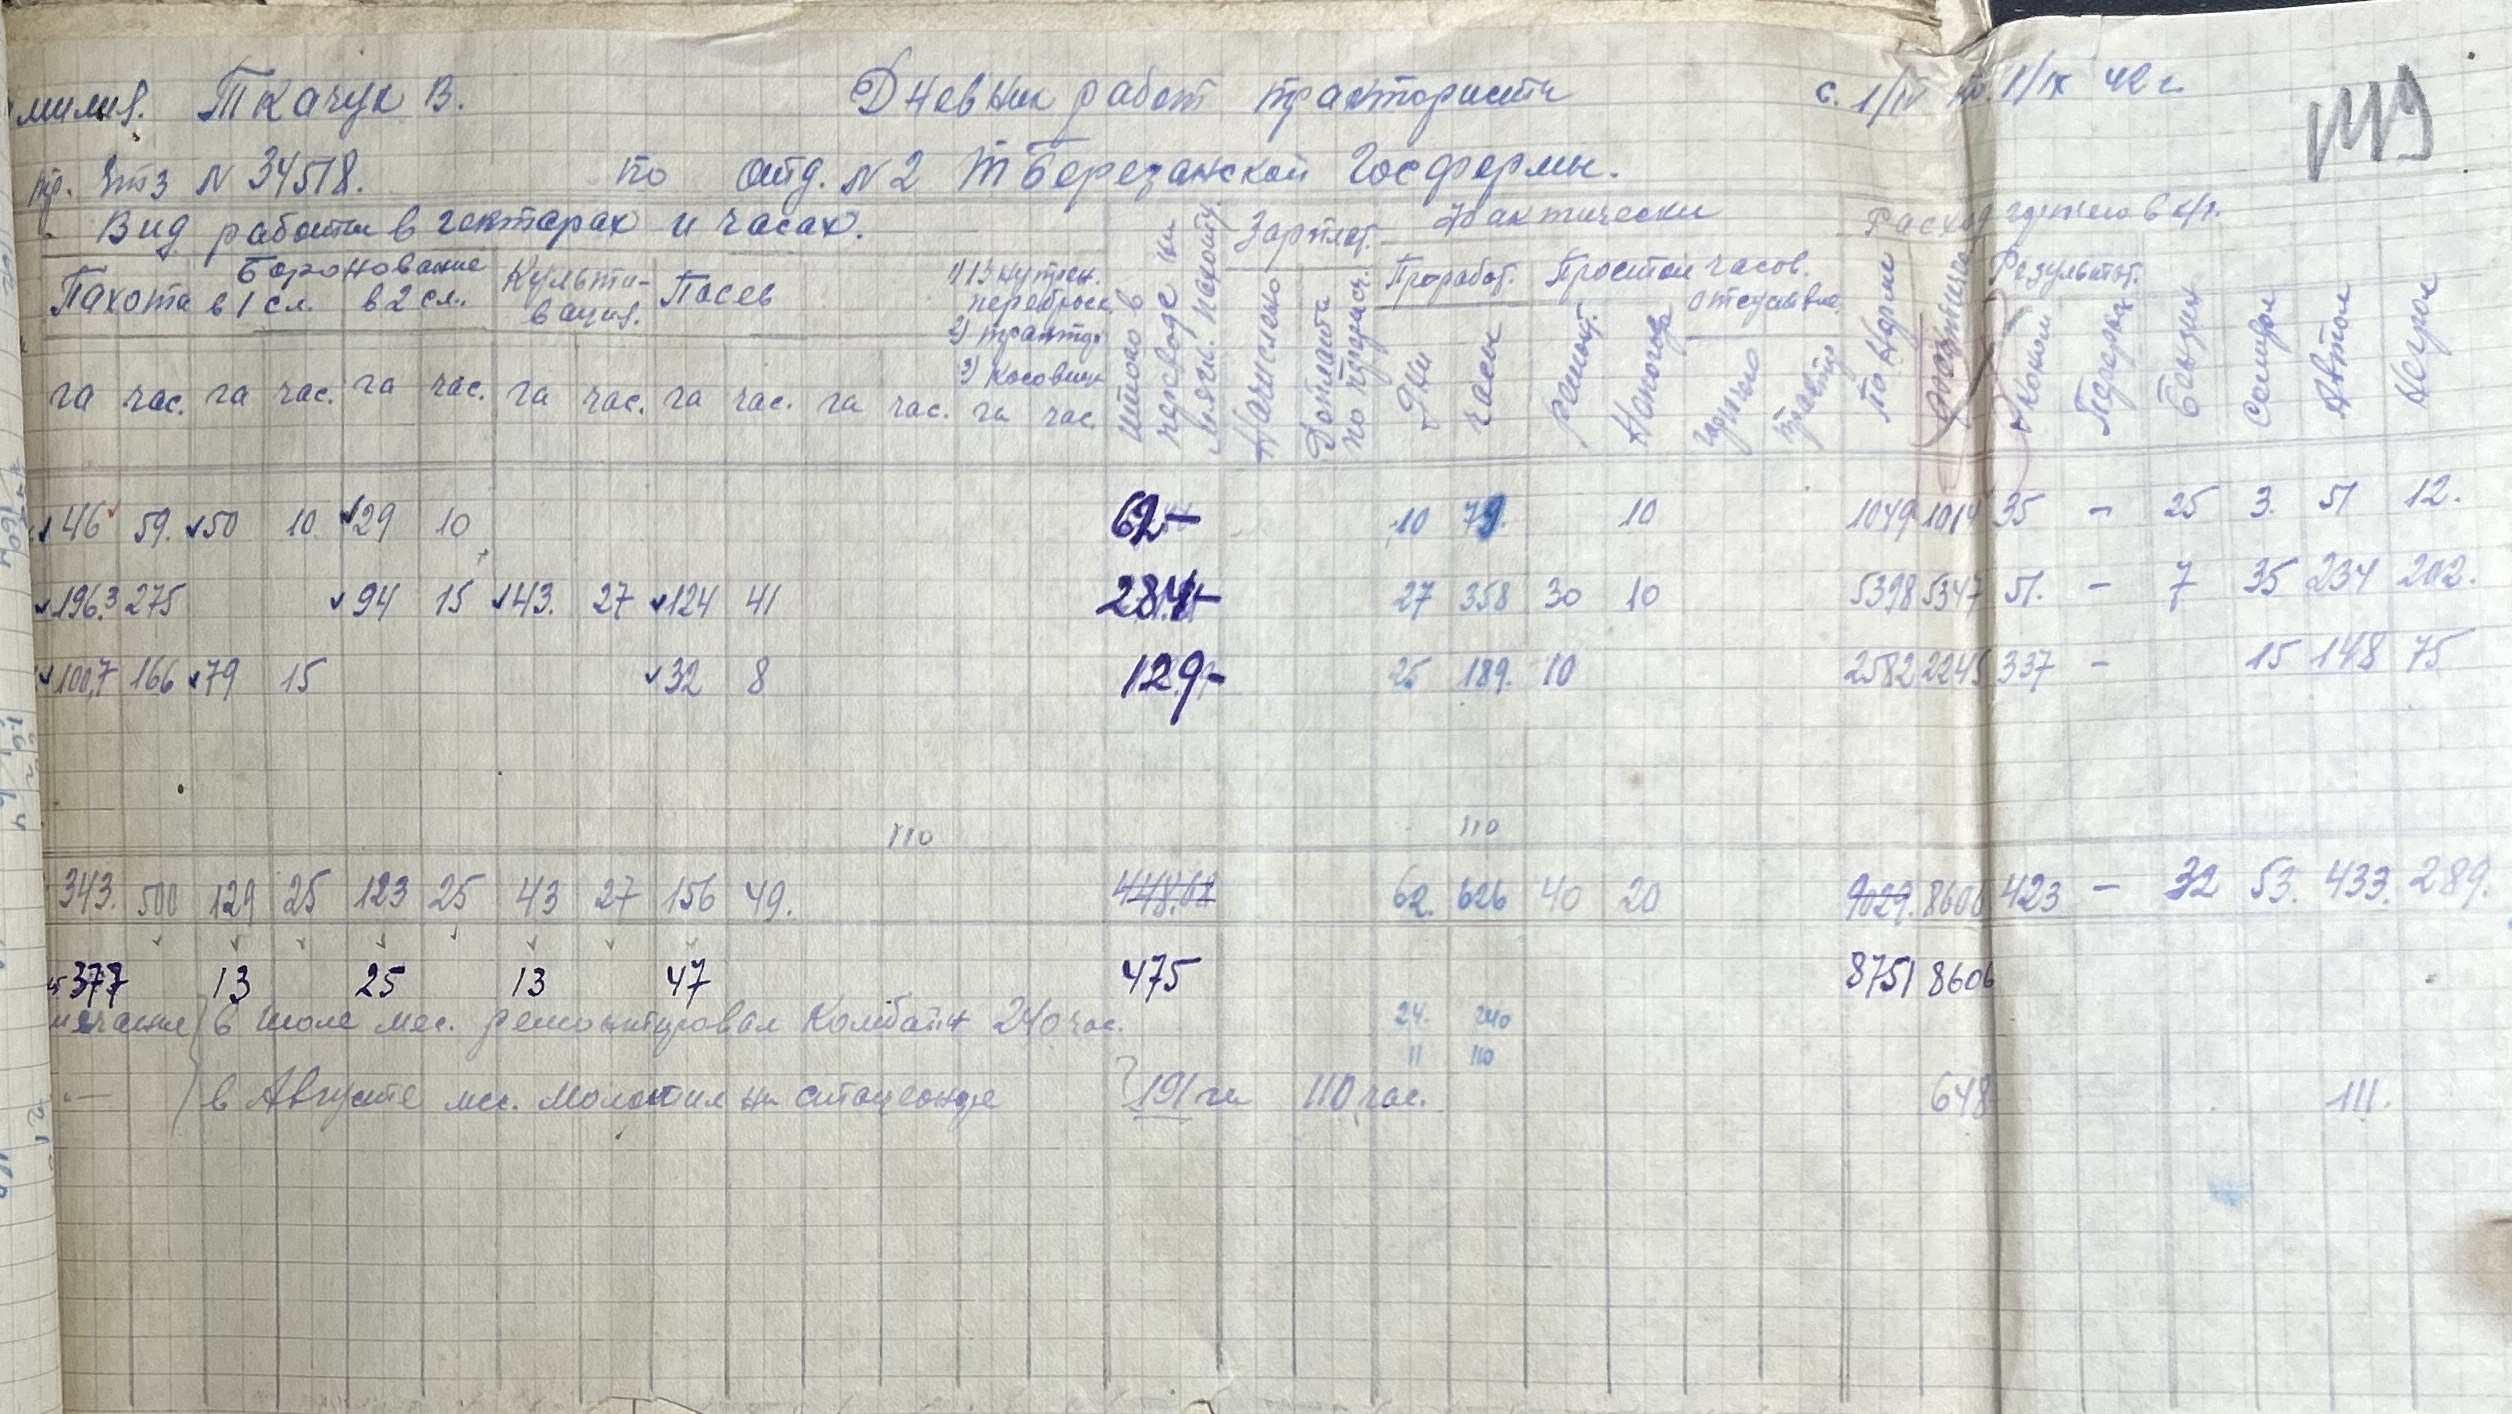 милия. Ткачук В. Дневник работ тракториста с. 1/IV по 1/IX 42 г.
тр. ЗТЗ N 34518. по отд. N 2 Т Березанской Госфермы.
Вид работы в гектарах и часах. Зарплат. Фактически Расход горючего в к/г.
Пахота Боронование в 1 сл. в 2 сл. Культивация. Посев 1) Внутрен. переброск. 2) трактор 3) косовица Итого в переводе на мягк. пахоту. Начислено Доплата Проработ. Дни часы Простои часов. ремонт. Непогода отсутствие горючего По норме Результат. Эконом Бензин Солидол Автол Нигрол
га час. га час. га час. га час. га час. га час. га час.
46 59. 50 10 29 10 62- 10 79. 10 1049 1014 35 - 25 3. 51 12.
196.3 275 94 15 43. 27 124 41 284- 27 358 30 10 5398 5347 51. - 7 35 234 202.
100,7 166 79 15 32 8 129- 25 189. 10 2582 2245 337 - 15 148 75
110 110
343. 500 129 25 123 25 43 27 156 49. 448.02 62. 626 40 20 9029. 8606 423 - 32 53. 433. 289.
377 13 25 13 47 475 8751 8606
мечание в июле мес. ремонтировал Комбайн 240 час. 24. 240
11 110
-"- в Августе мес. молотил на стационаре 191 га 110 час. 648 111.